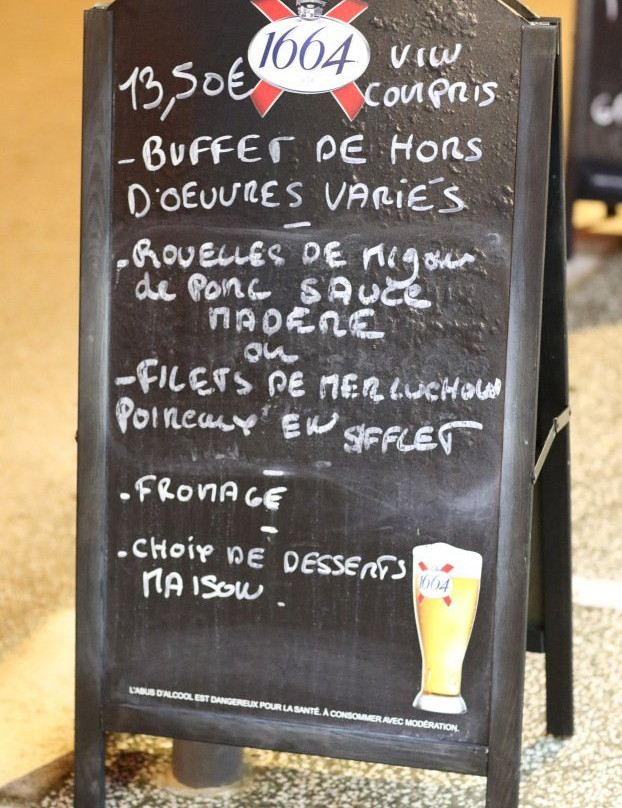 1664
13,50€ VIN
COMPRIS
- BUFFET DE HORS
D'OEUVRES VARIÉS
- ROUELLES DE MIGNON
de PORC SAUCE
MADERE
OU
- FILETS DE MERLUCHON
POIREAUX EN SIFFLET
- FROMAGE
- CHOIX DE DESSERTS
MAISON.
1664
L'ABUS D'ALCOOL EST DANGEREUX POUR LA SANTÉ. À CONSOMMER AVEC MODÉRATION.